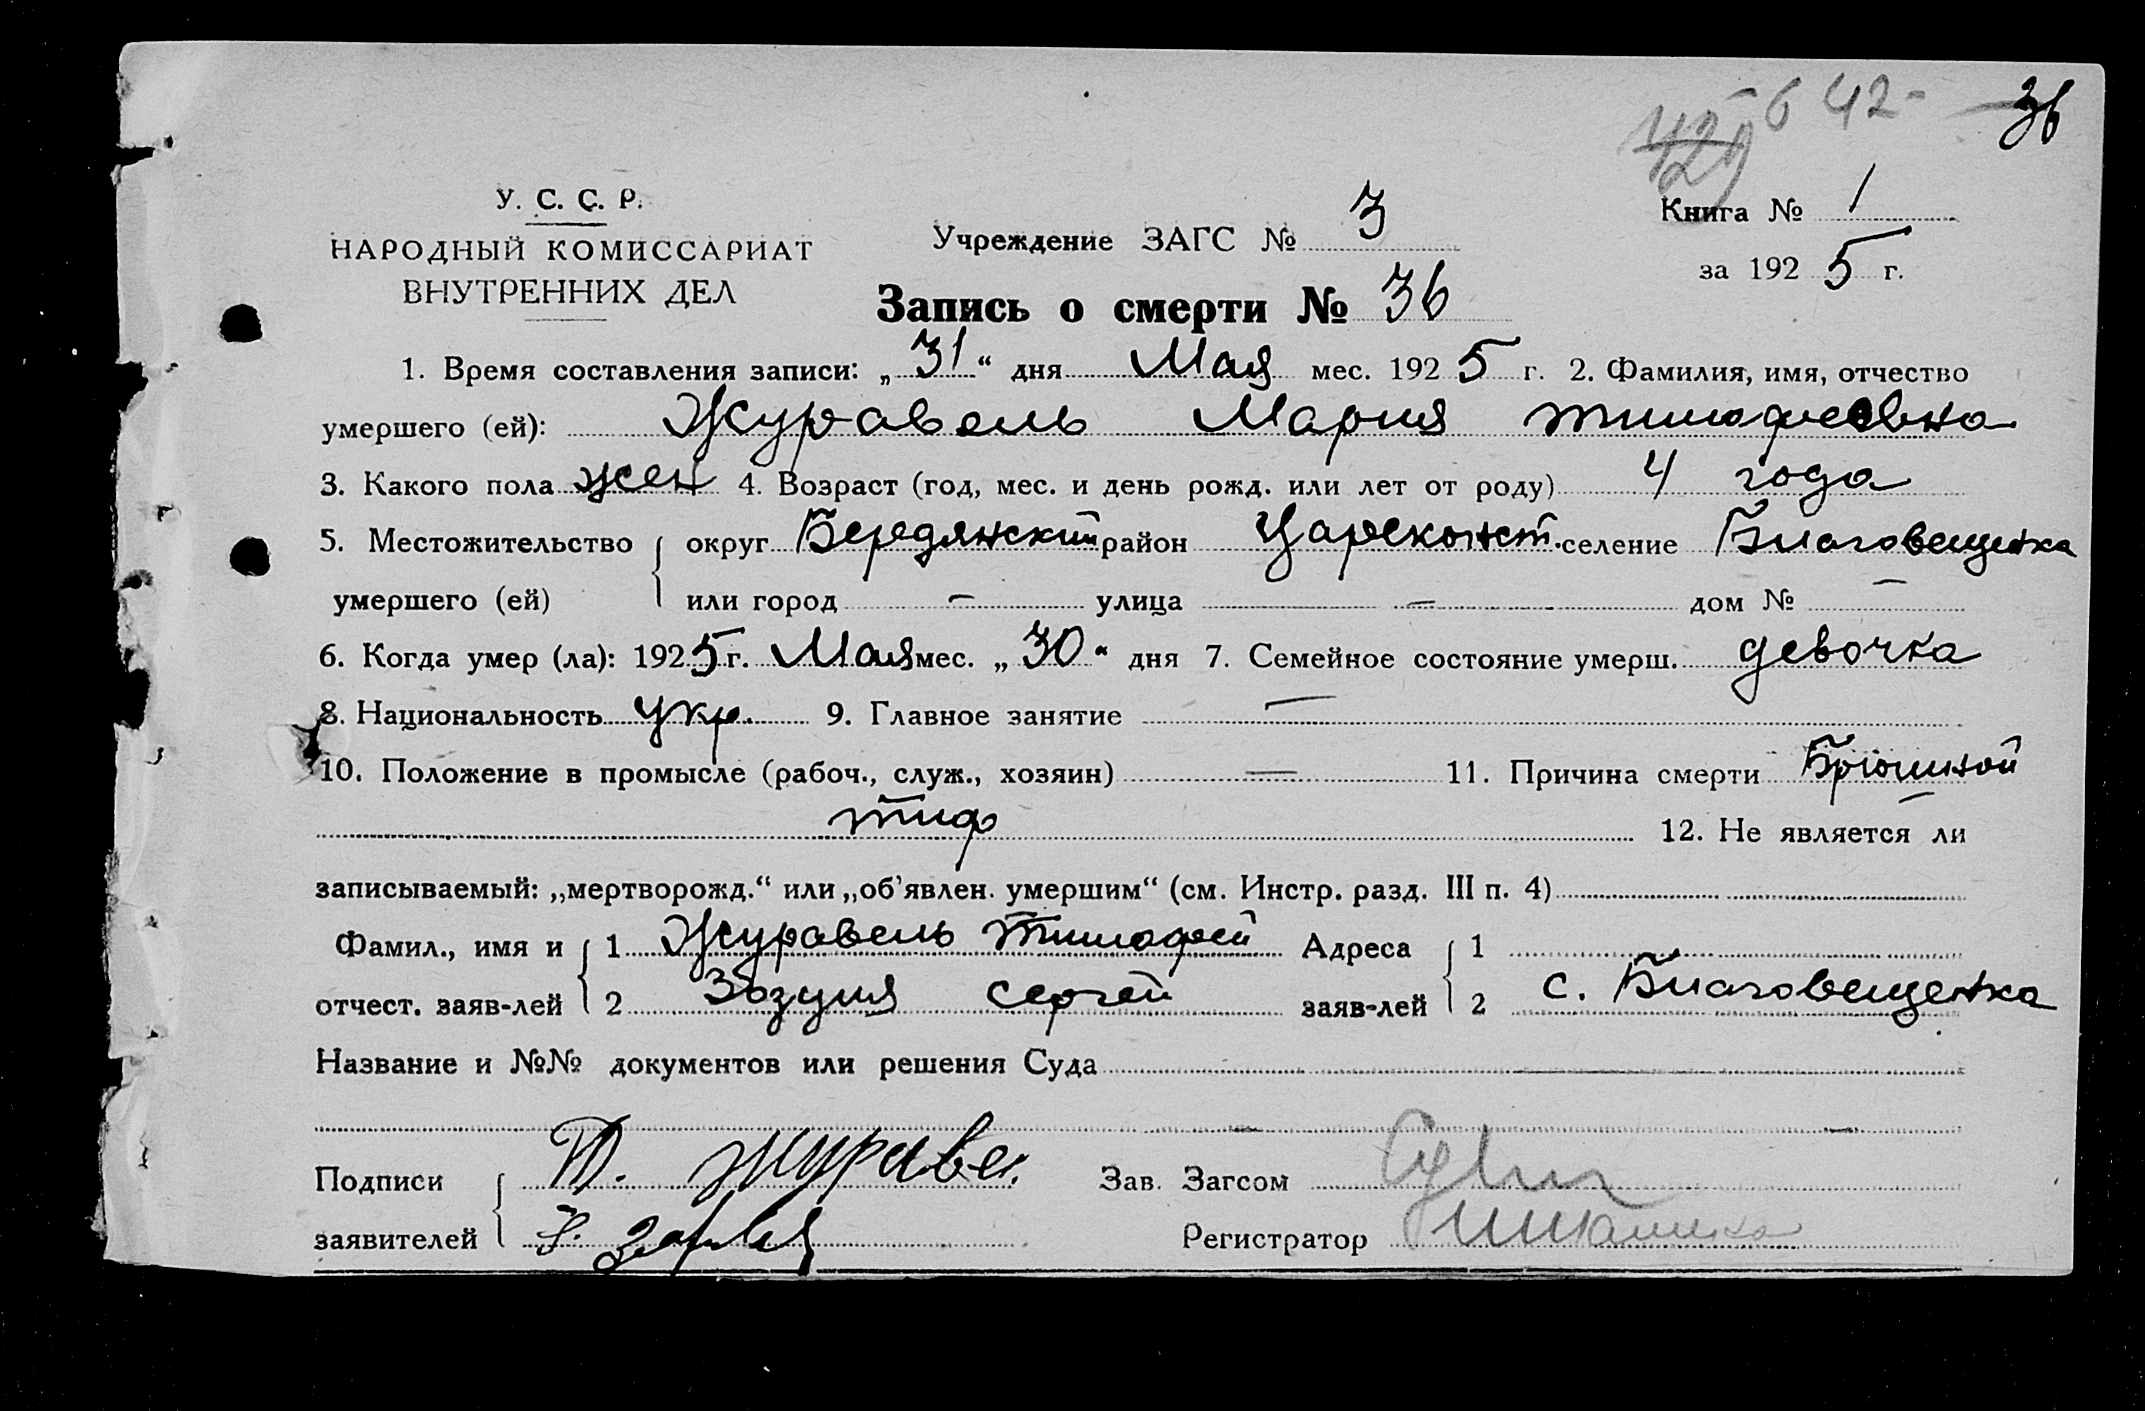 642- 36
429
У. С. С. Р.
НАРОДНЫЙ КОМИССАРИАТ
ВНУТРЕННИХ ДЕЛ
Учреждение ЗАГС № 3
Книга № 1
за 1925 г.
Запись о смерти № 36
1. Время составления записи: „31“ дня Мая мес. 1925 г. 2. Фамилия, имя, отчество
умершего (ей): Журавель Мария Тимофеевна
3. Какого пола жен 4. Возраст (год, мес. и день рожд. или лет от роду) 4 года
5. Местожительство округ Бердянский район Цареконст. селение Благовещенка
умершего (ей) или город — улица — дом № —
6. Когда умер (ла): 1925 г. Мая мес. „30“ дня 7. Семейное состояние умерш. девочка
8. Национальность укр. 9. Главное занятие —
10. Положение в промысле (рабоч., служ., хозяин) — 11. Причина смерти Брюшной
тиф 12. Не является ли
записываемый: „мертворожд.“ или „об’явлен. умершим“ (см. Инстр. разд. III п. 4)
Фамил., имя и 1 Журавель Тимофей Адреса 1
отчест. заяв-лей 2 Зозуля Сергей заяв-лей 2 с. Благовещенка
Название и №№ документов или решения Суда
Подписи Т. Журавел Зав. Загсом
заявителей Регистратор